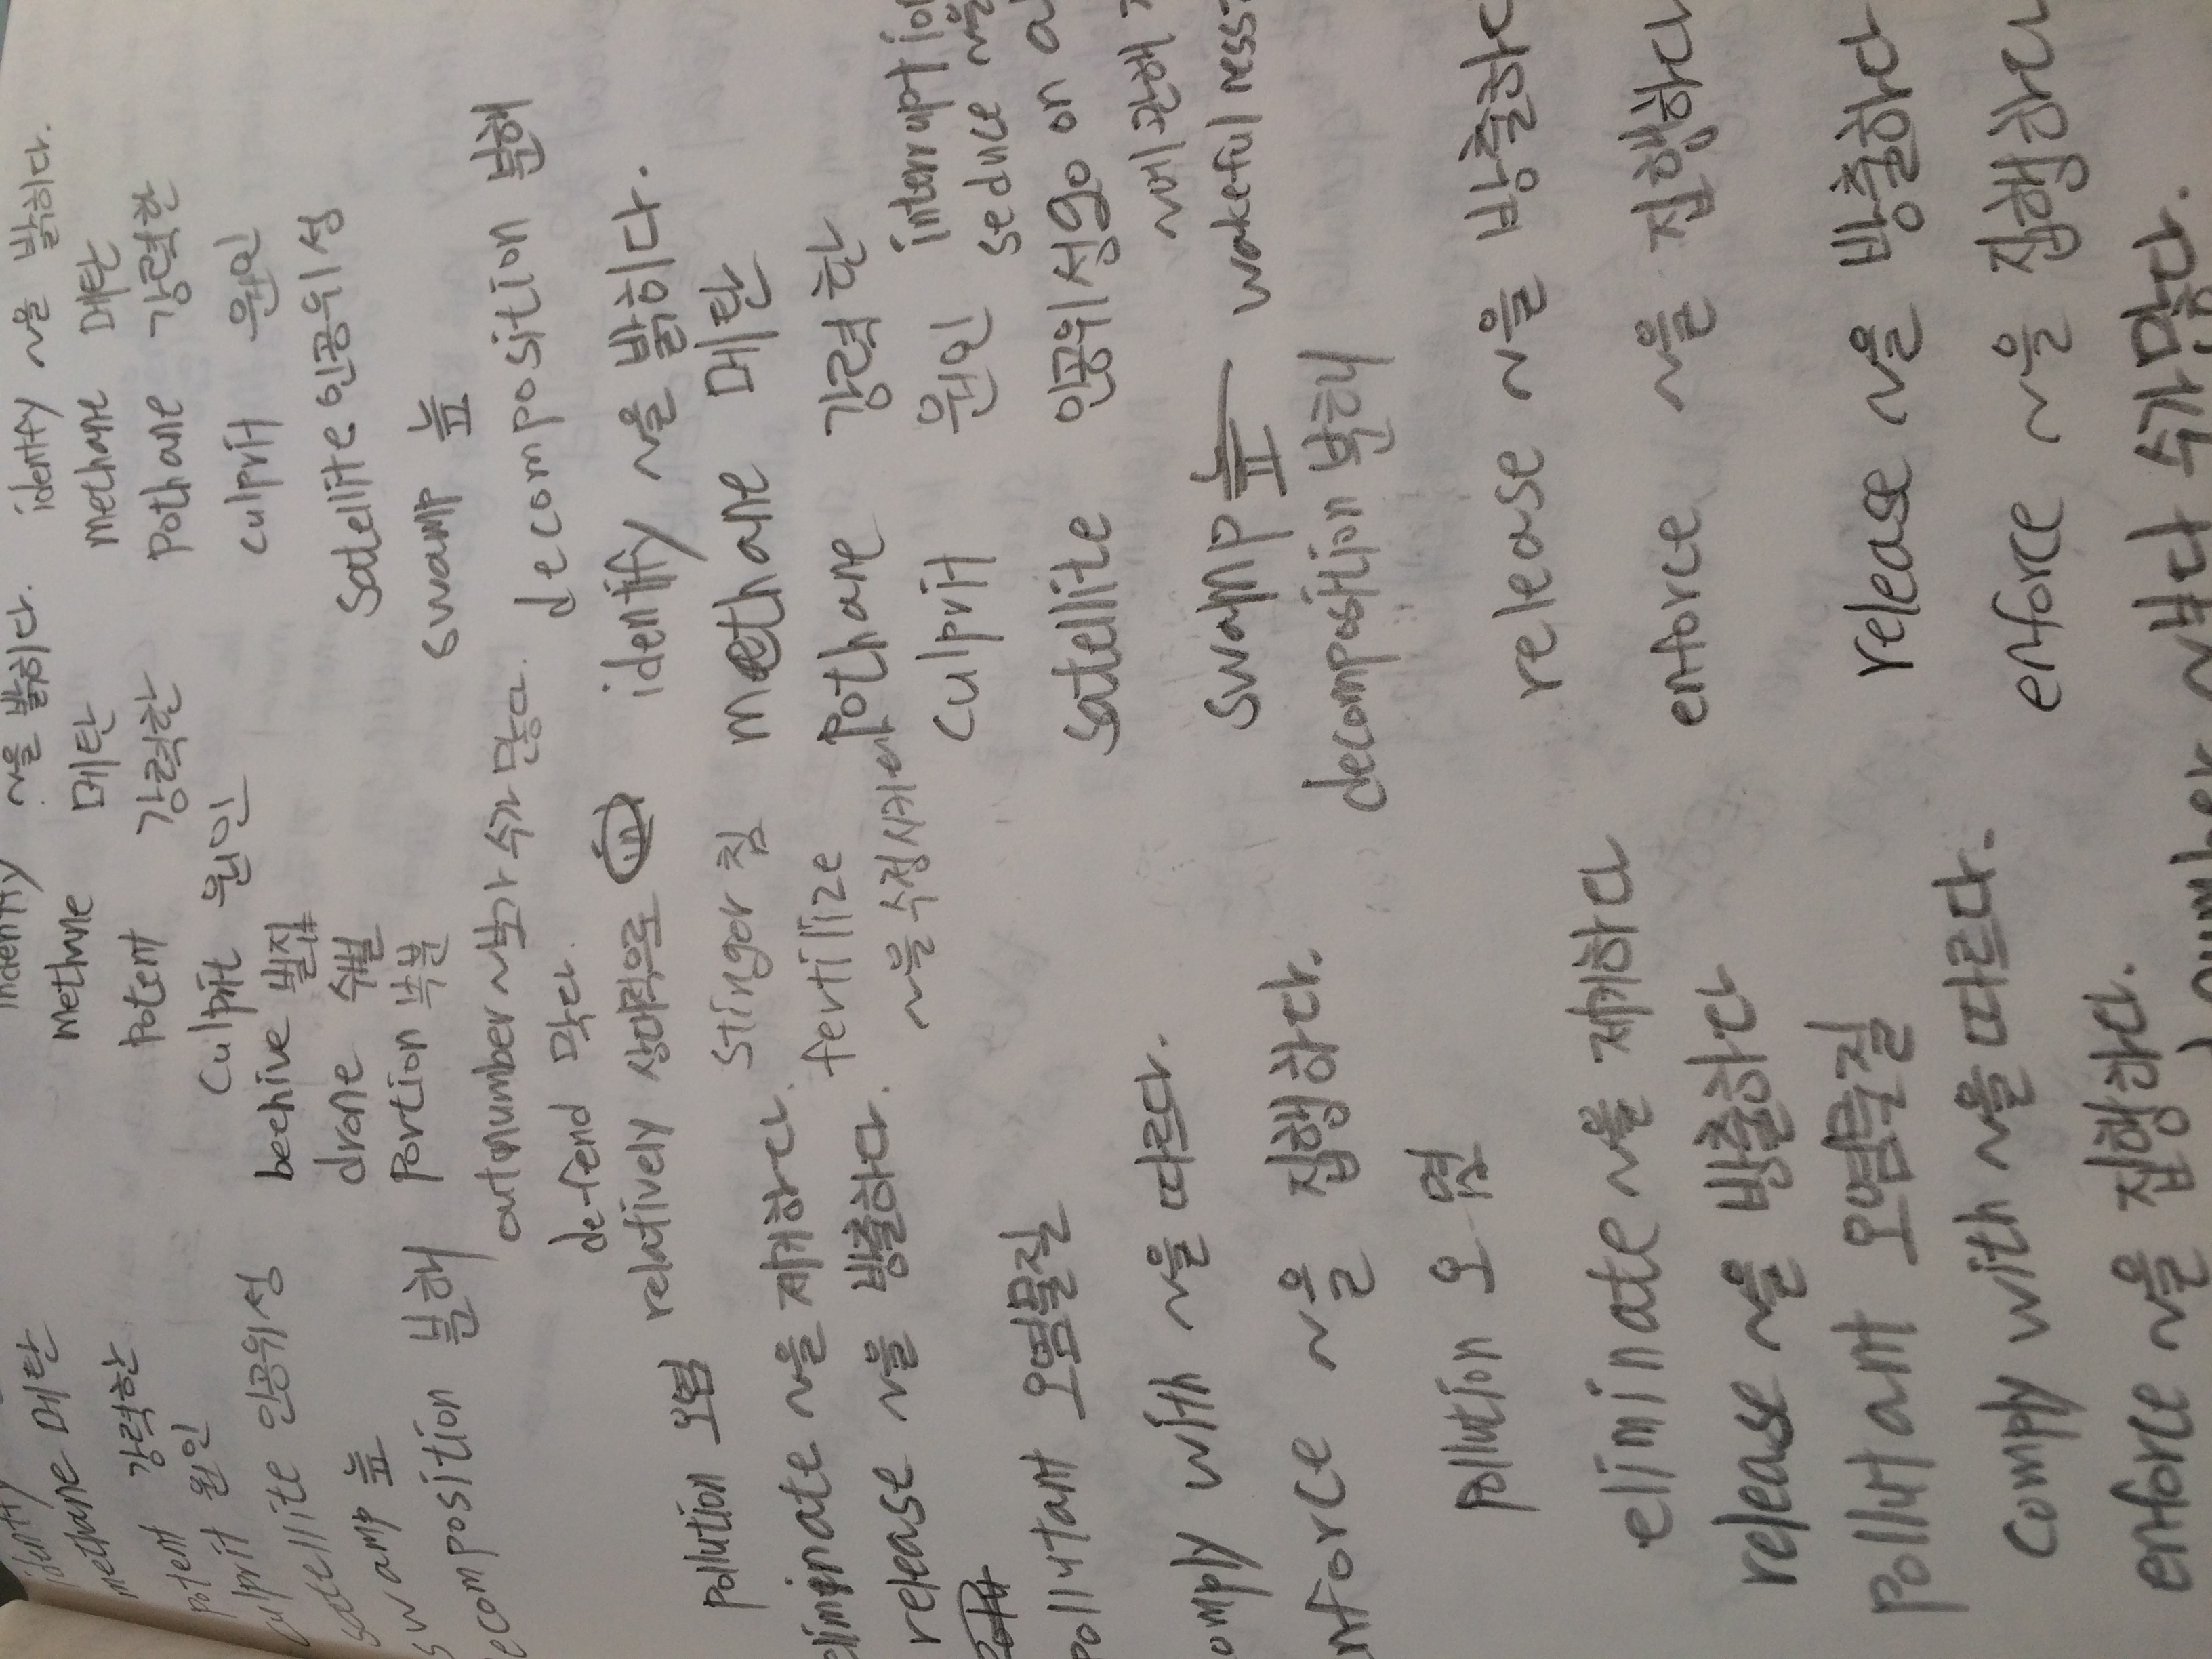 identify
methane 메탄
potent 강력한
culprit 원인
satellite 인공위성
swamp 늪
ecomposition 분해
pollution 오염
eliminate ~을 제거하다.
release ~을 방출하다.
pollutant 오염물질
omply with ~을 따르다.
nforce ~을 집행하다.
pollution 오염
eliminate ~을 제거하다
release ~을 방출하다
pollutant 오염물질
comply with ~을 따르다.
enforce ~을 집행하다.
indentify ~을 밝히다.
methane 메탄
potent 강력한
culprit 원인
beehive 벌집
drone 수벌
portion 부분
outnumber ~보다 수가 많다.
defend 막다.
relatively 상대적으로
stinger 침
fertilize
~을 수정시키다
identify ~을 밝히다.
methane 메탄
pothane 강력한
culprit 원인
satellite 인공위성
swamp 늪
decomposition 분해
identify ~을 밝히다.
methane 메탄
pothane 강력한
culprit 원인
satellite 인공위성
swamp 늪
decomposition 분해
interruption
seduce ~을
go on
~에 관해
wakeful
release ~을 방출하다
enforce ~을 집행하다
release ~을 방출하다
enforce ~을 집행하다
number ~보다 수가 많다.